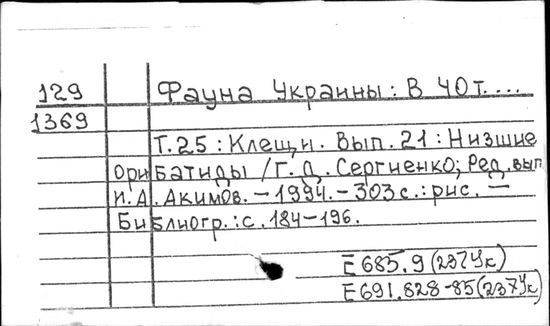 129 Фауна Украины: В 40 т. ...
1369
Т.25: Клещи. Вып. 21: Низшие
орибатиды / Г. Д. Сергиенко; Ред. вып.
И. А. Акимов. – 1994. – 303 с.: рис. –
Библиогр.: с. 184–196.
Е 685.9 (237Ук)
Е 691.828-85 (237Ук)